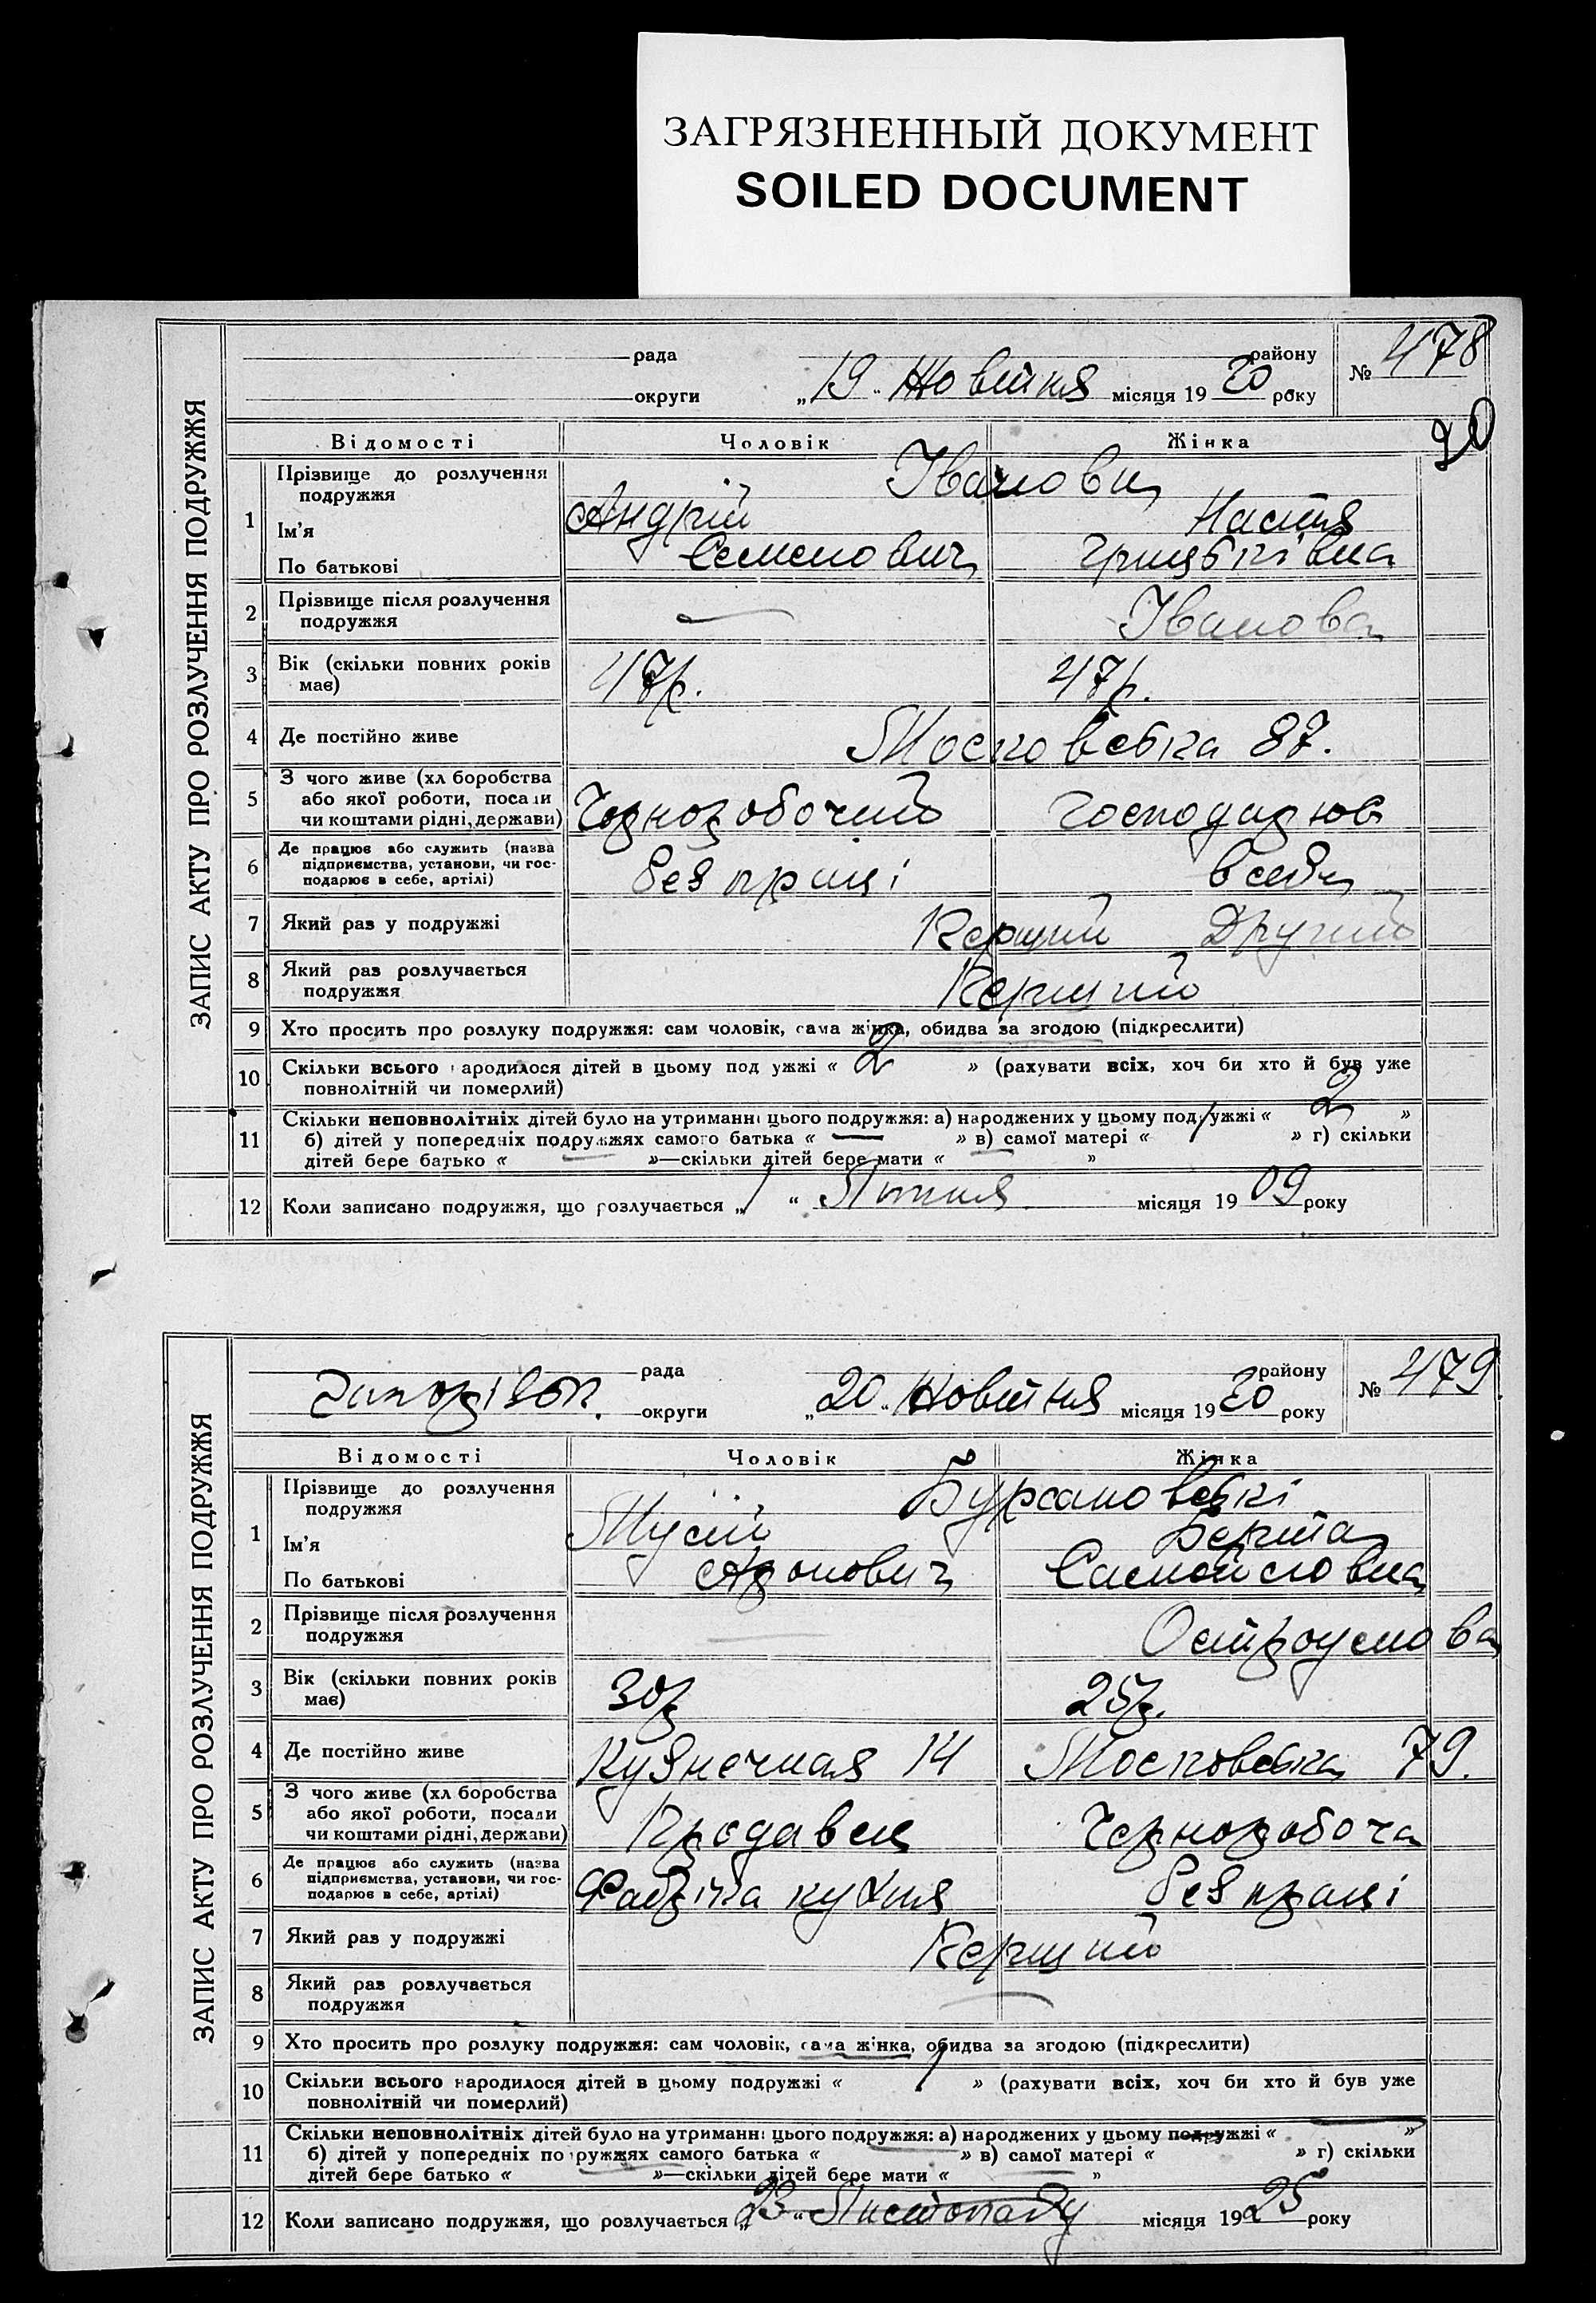 ЗАГРЯЗНЕННЫЙ ДОКУМЕНТ
SOILED DOCUMENT
ЗАПИС АКТУ ПРО РОЗЛУЧЕННЯ ПОДРУЖЖЯ
рада району
округи „19“ Жовтня місяця 1930 року
№ 478
90
Відомості Чоловік Жінка
1 Прізвище до розлучення подружжя Іванови
Ім'я Андрій Настя
По батькові Семенович Грицьківна
2 Прізвище після розлучення
подружжя — Іванова
3 Вік (скільки повних років
має) 47р. 47р.
4 Де постійно живе Московська 87.
5 З чого живе (хліборобства
або якої роботи, посади
чи коштами рідні, держави) Чорноробочий Господарює
6 Де працює або служить (назва
підприємства, установи, чи гос-
подарює в себе, артілі) без праці в себе
7 Який раз у подружжі Перший Другий
8 Який раз розлучається
подружжя Перший
9 Хто просить про розлуку подружжя: сам чоловік, сама жінка, обидва за згодою (підкреслити)
10 Скільки всього народилося дітей в цьому подружжі « 2 » (рахувати всіх, хоч би хто й був уже
повнолітній чи померлий)
11 Скільки неповнолітніх дітей було на утриманні цього подружжя: а) народжених у цьому подружжі « 2 »
б) дітей у попередніх подружжях самого батька « — » в) самої матері « » г) скільки
дітей бере батько « — »—скільки дітей бере мати « — »
12 Коли записано подружжя, що розлучається „1“ Липня місяця 1909 року
ЗАПИС АКТУ ПРО РОЗЛУЧЕННЯ ПОДРУЖЖЯ
рада району
Запорізьк. округи „20“ Жовтня місяця 1930 року
№ 479.
Відомості Чоловік Жінка
1 Прізвище до розлучення
подружжя Бурсановські
Ім'я Мусій Берта
По батькові Аронович Самойловна
2 Прізвище після розлучення
подружжя — Остроумова
3 Вік (скільки повних років
має) 30р 25р.
4 Де постійно живе Кузнечная 14 Московська 79.
5 З чого живе (хліборобства
або якої роботи, посади
чи коштами рідні, держави) Продавец Чорноробоча
6 Де працює або служить (назва
підприємства, установи, чи гос-
подарює в себе, артілі) Фабріка кухня без праці
7 Який раз у подружжі Перший
8 Який раз розлучається
подружжя —
9 Хто просить про розлуку подружжя: сам чоловік, сама жінка, обидва за згодою (підкреслити)
10 Скільки всього народилося дітей в цьому подружжі « 1 » (рахувати всіх, хоч би хто й був уже
повнолітній чи померлий)
11 Скільки неповнолітніх дітей було на утриманні цього подружжя: а) народжених у цьому подружжі « — »
б) дітей у попередніх подружжях самого батька « — » в) самої матері « » г) скільки
дітей бере батько « — »—скільки дітей бере мати « — »
12 Коли записано подружжя, що розлучається „23“ Листопаду місяця 1925 року